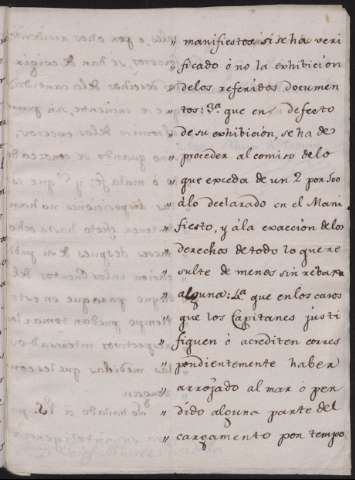 " manifiestos si se ha veri
" ficado ó no la exhibicion
" de los referidos documen
" tos: 3.ª que en defecto
" de su exhibicion, se ha de
" proceder al comiso de lo
" que exceda de un 2 por 100
" á lo declarado en el Mani
" fiesto, y á la exaccion de los
" derechos de todo lo que re
" sulte de menos sin rebaxa
" alguna: 4.ª que en los casos
" que los Capitanes justi
" fiquen ó acrediten corres
" pondientemente haber
" arrojado al mar ó per
" dido alguna parte del
" cargamento por tempo